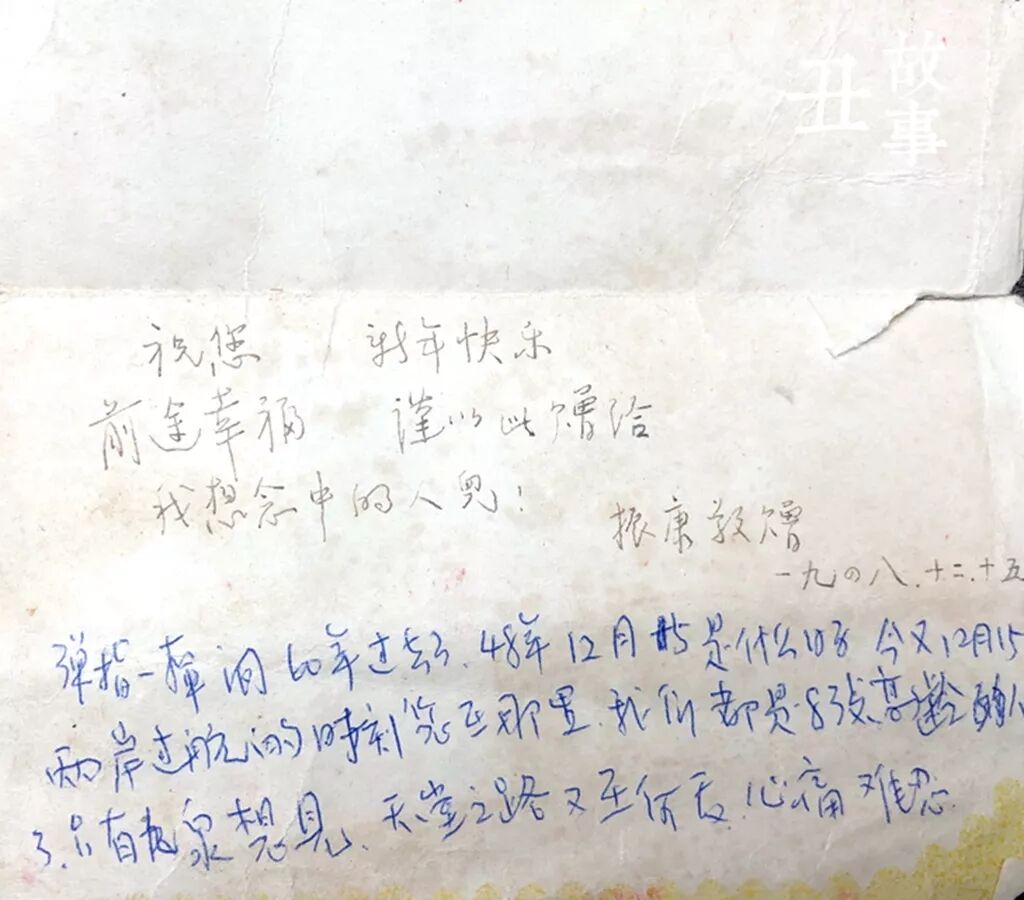 故事
丑
祝您 新年快乐
前途幸福 谨以此赠给
我想念中的人儿!
振康敬赠
一九四八.十二.十五
弹指一挥间60年过去了.48年12月15是什么日子 今又12月15
两岸过航的时刻您在那里.我们都是8张高龄的人
了.只有九泉想见.天堂之路又在何方.心痛难忍